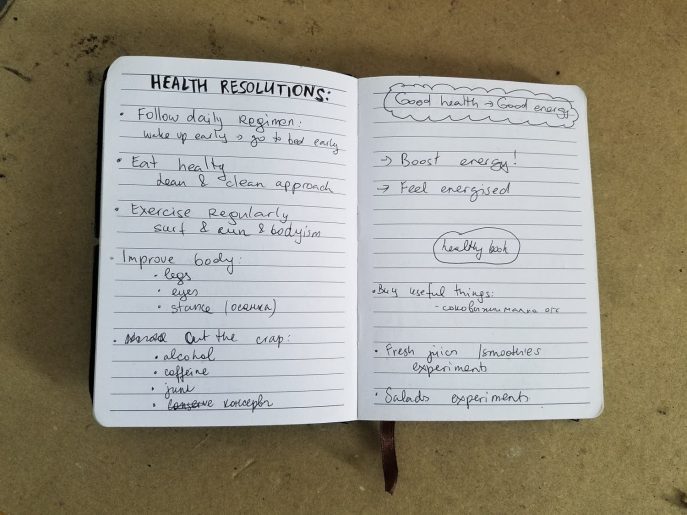 HEALTH RESOLUTIONS:
• Follow daily Regimen:
wake up early → go to bed early
• Eat healty
Lean & clean approach
• Exercise Regularly
surf & run & bodyism
• Improve body:
• legs
• eyes
• stance (осанка)
• Cut the crap:
• alcohol
• caffeine
• junk
• консервы
Good health → Good energy
→ Boost energy!
→ Feel energised
healthy book
• Buy useful things:
- соковыжималка
• Fresh juices / smoothies
experiments
• Salads experiments